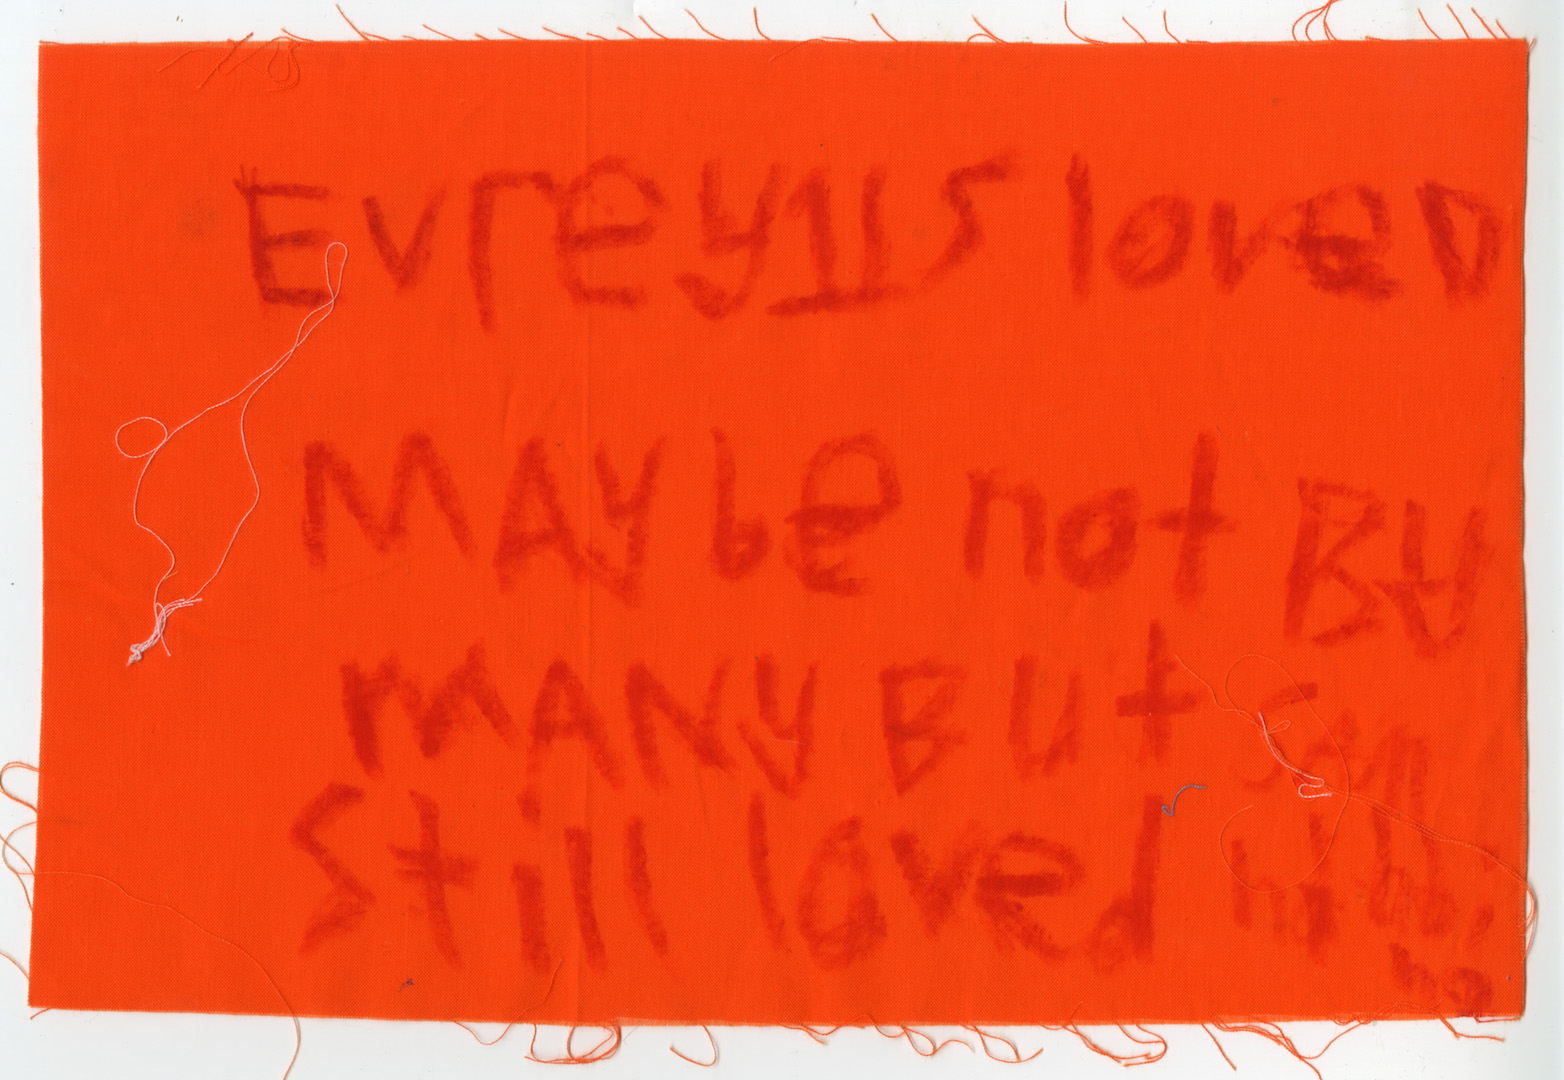 Evrey1 Is loveD
MAybe not By
MANy But
Still loved